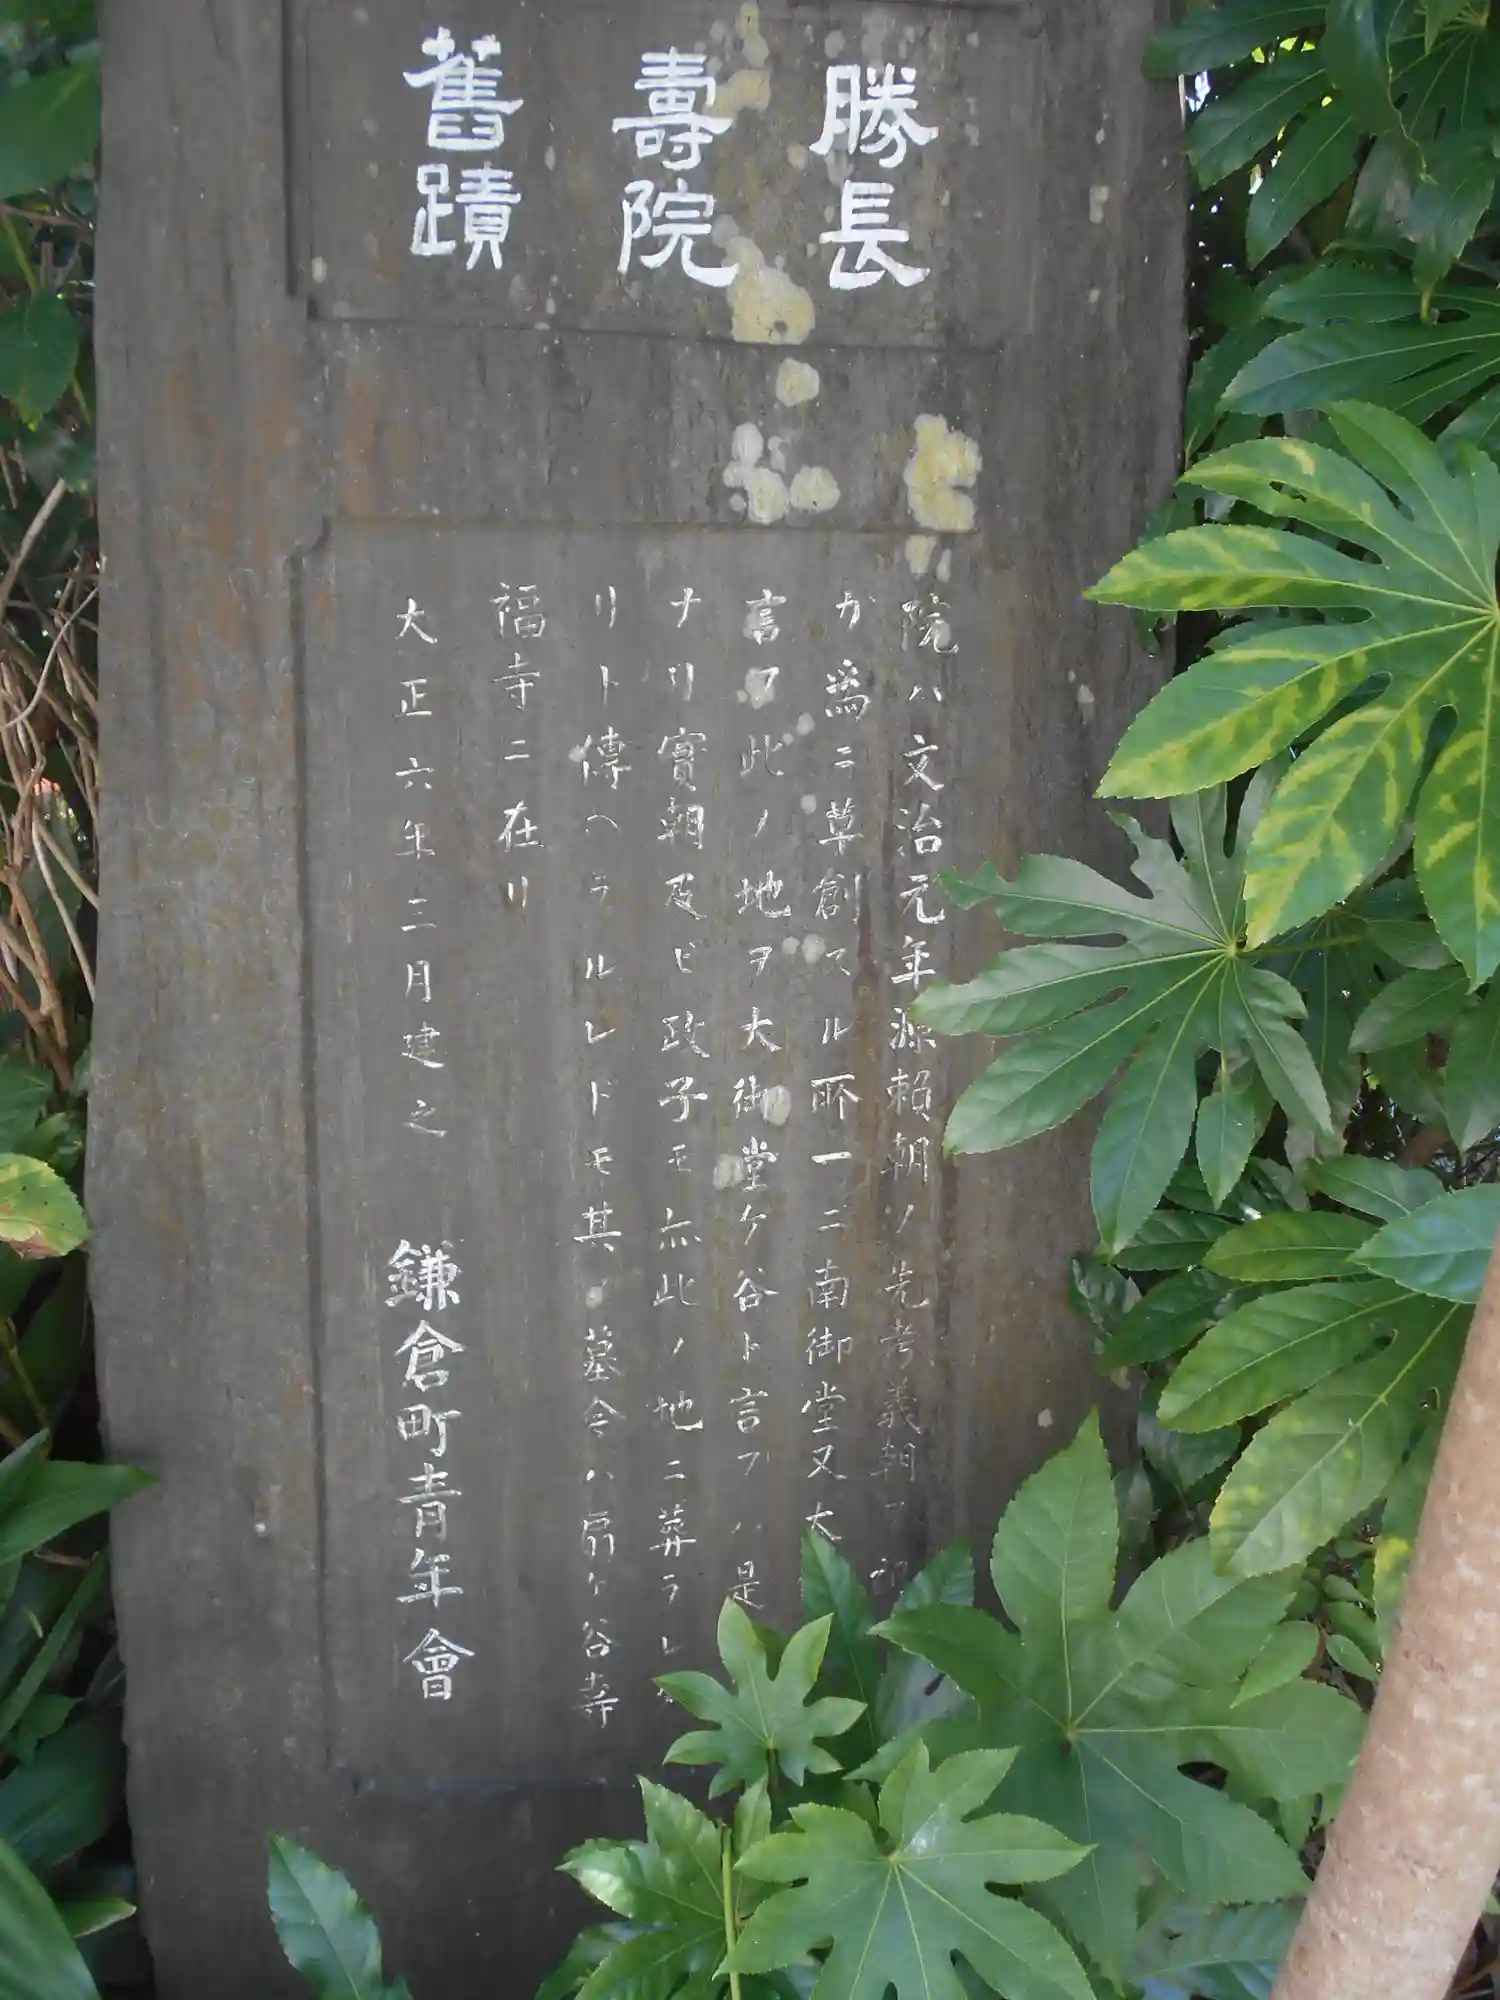 勝長
壽院
舊蹟
院ハ文治元年源賴朝ノ先考義朝ヲ
ガ爲ニ草創スル所一ニ南御堂又大
言フ此ノ地ヲ大御堂ケ谷ト言フハ是
ナリ實朝及ビ政子モ亦此ノ地ニ葬ラレ
リト傳ヘラルルレドモ其ノ墓今ハ扇ケ谷寺
福寺ニ在リ
大正六年三月建之 鎌倉町青年會